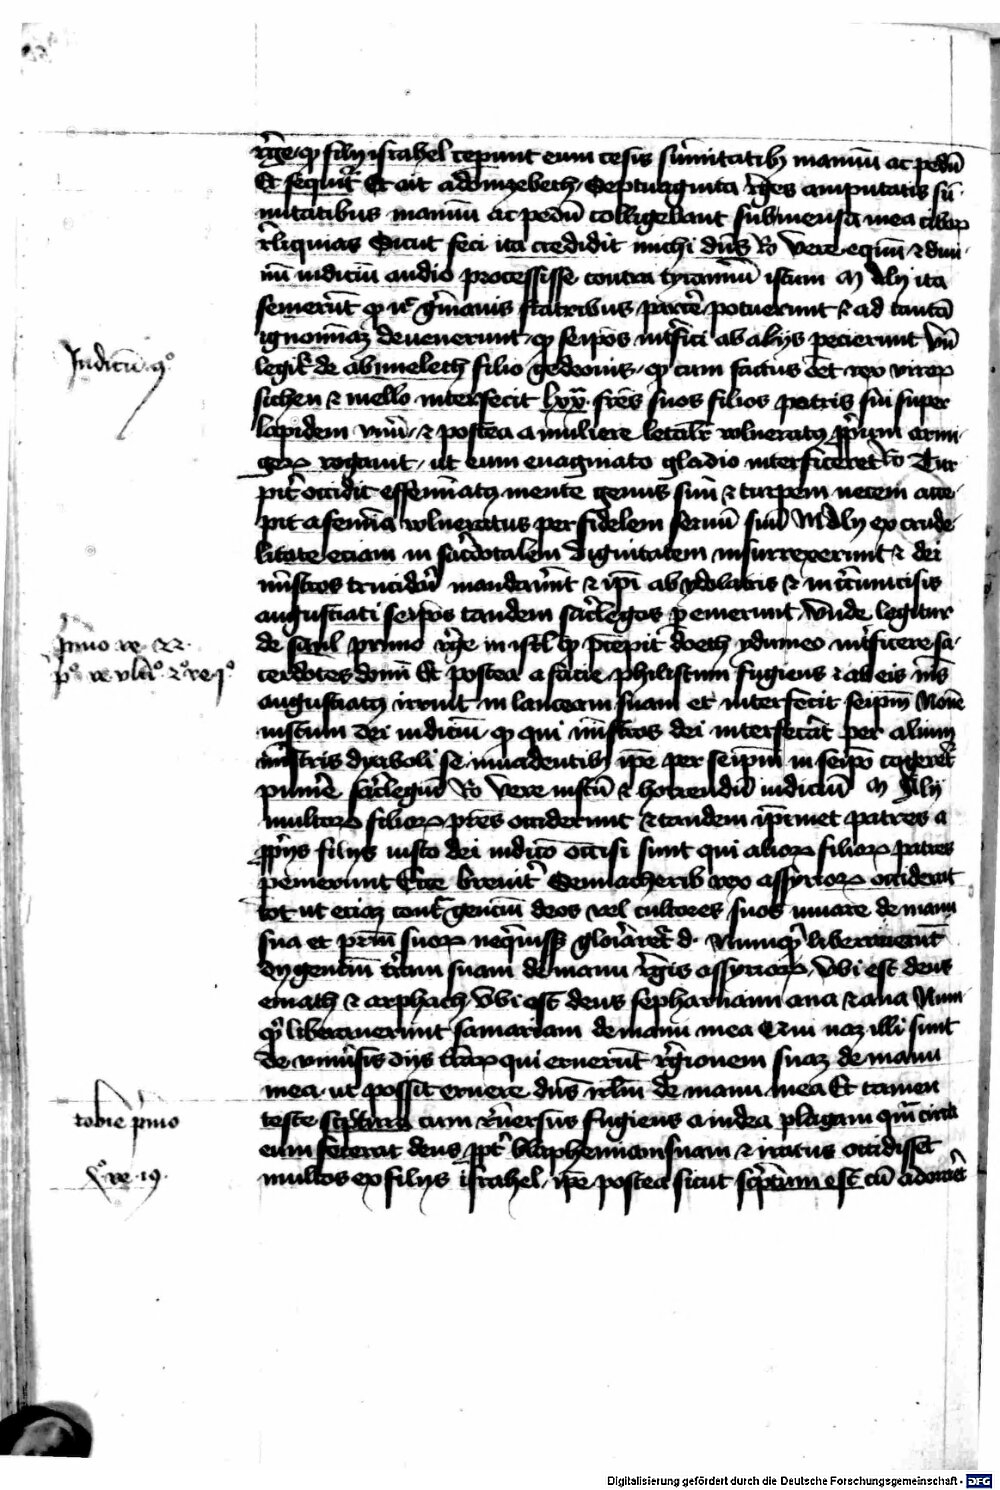 rege q filii israhel ceperunt eum cesis sumitatibus manuum ac pedum
Et sequitur Et ait adonizebech Septuaginta reges amputatis sum
mitatibus manuum ac pedum colligebant sub mensa mea ciborum
reliquias Sicut feci ita reddidit michi deus Ro vere equum et divi
num iudicium audio processisse contra tyrannum istum Alii ita
semerunt q nec germanis fratribus parcere potuerunt et ad tantam
ignominiam devenerunt q seipos interfici ab aliis pecierunt Unde
Judicum 9o
legitur de abimelech filio gedeonis q cum factus esset rex virorum
sichen et mello interfecit lxx fratres suos filios patris sui super
lapidem unum et postea a muliere letaliter volneratus proprium armi
gerum rogavit ut eum evaginato gladio interficeret Ro Tur
piter occidit effeminatus mente genus suum et turpem necem acce
pit a femina volneratus per fidelem servum suum Alii ex crude
litate eciam in sacerdotalem dignitatem insurrexerunt et dei
ministros trucidari mandaverunt et ipsi ab ydolatris et incircumcisis
angustiati seipos tandem sacrilegos peremerunt Unde legitur
primo re 22
de saul primo rege in israel q precepit doech ydumeo interficere sa
po re ulti 2o re io
cerdotes domini Et postea a facie philistim fugiens et ab eis nimis
angustiatus irruit in lanceam suam et interfecit seipm Nonne
iustum dei iudicium q qui ministros dei interfecerat per alium
ministris dyaboli se invadentibus ipe per seipm in seipo cogeretur
punire sacrilegium Ro vere iustum et horrendum iudicium Alii
multorum filiorum patres occiderunt et tandem ipimet patres a
propriis filiis iusto dei iudicio occisi sunt qui aliorum filiorum patres
peremerunt Ecce breviter Sennacherib rex assyriorum occiderat
tot ut eciam contra gencium deos vel cultores suos iuvare de manu
sua et patrum suorum nequivisse gloriaretur d. Numquid liberaverunt
dii gencium terram suam de manu regis assyriorum Ubi est deus
emath et arphach Ubi est deus sepharvaim ana et ava Num
quid liberaverunt samariam de manu mea Qui nam illi sunt
de universis diis terrarum qui eruerunt regionem suam de manu
mea ut possit eruere deus irlm de manu mea Et tamen
tobie primo
teste scriptura cum reversus fugiens a iudea plagam quam circa
eum fecerat deus propter blasphemiam suam et iratus occidisset
4o re 19
multos ex filiis israhel ipe postea sicut scriptum est cum adoraret
Digitalisierung gefördert durch die Deutsche Forschungsgemeinschaft - DFG